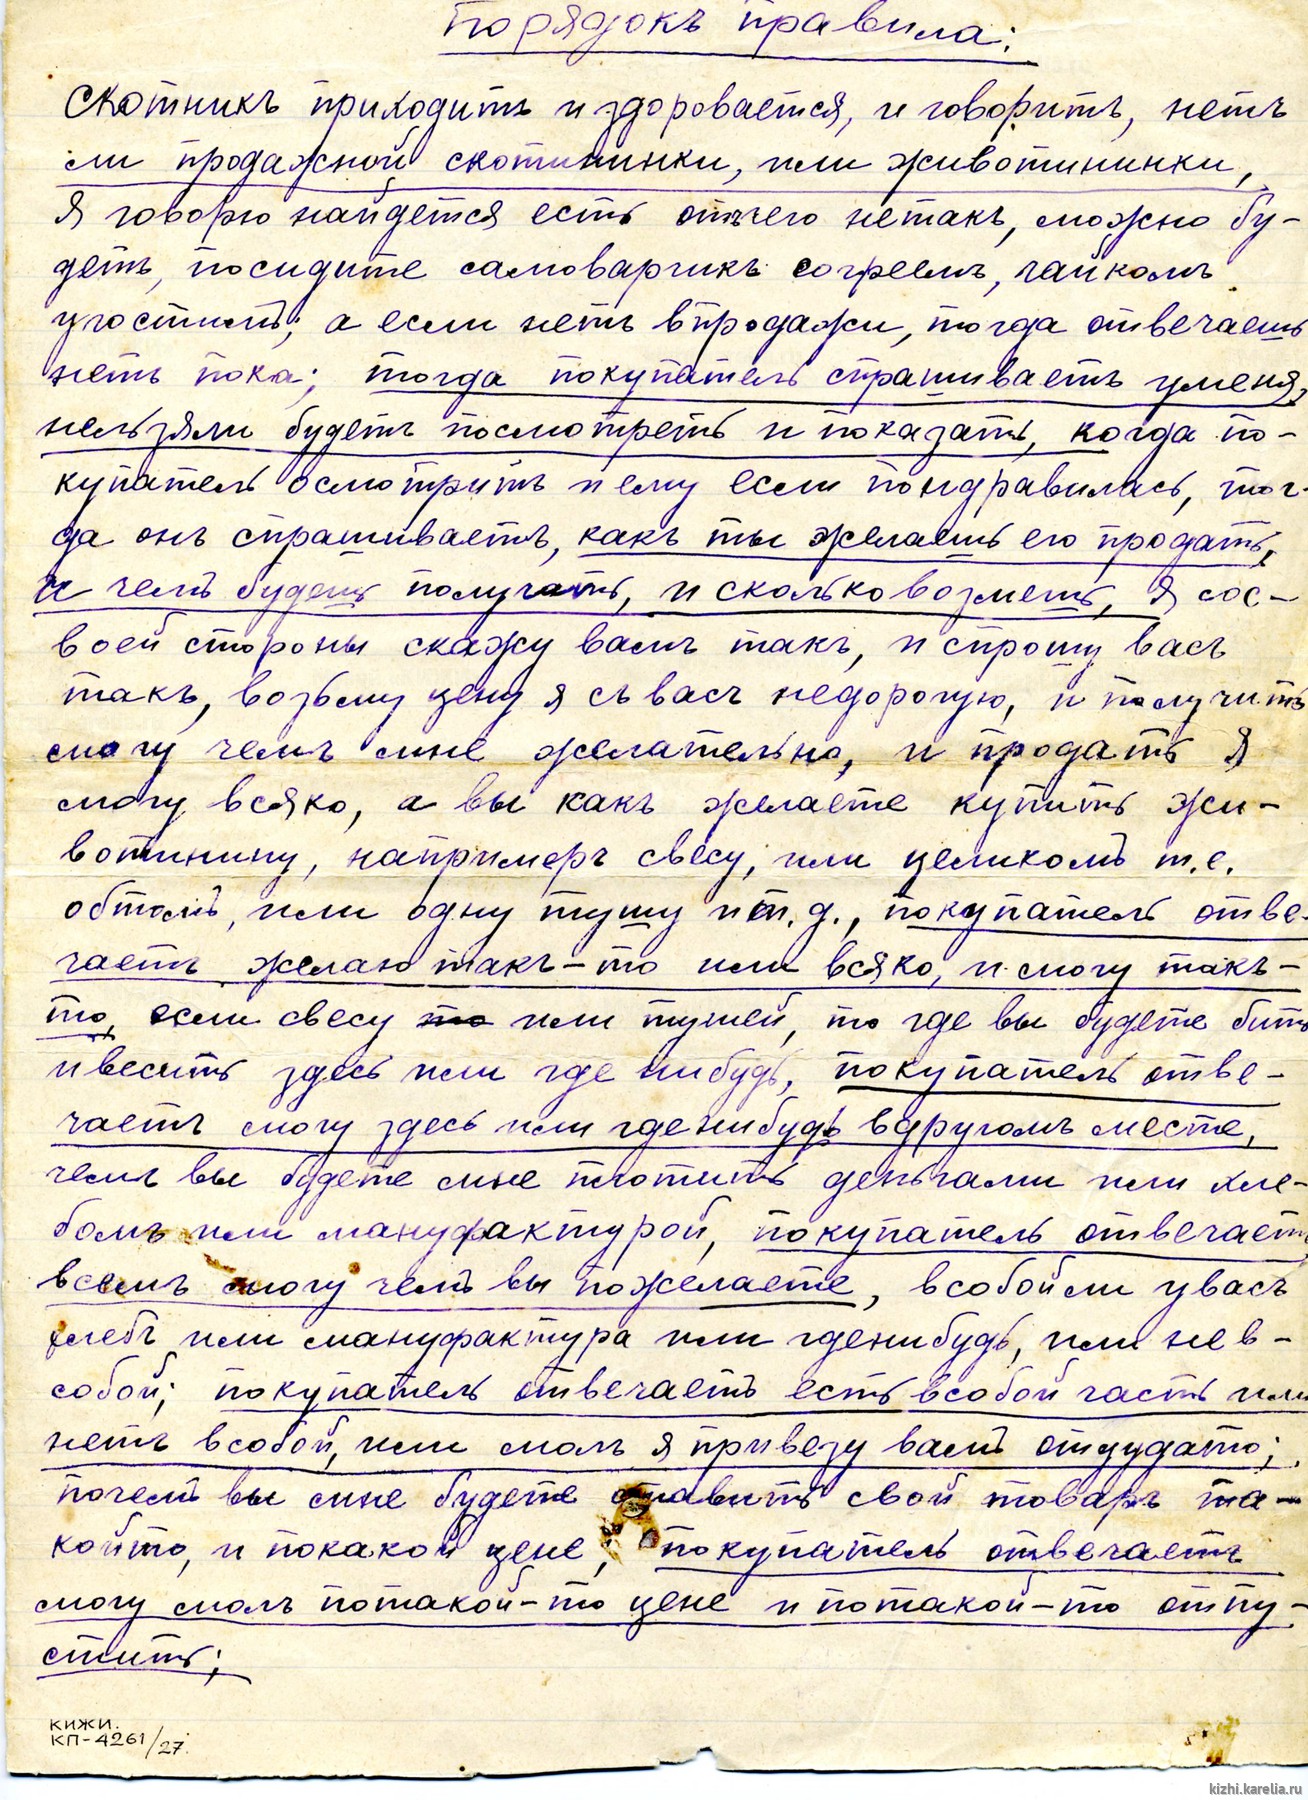 Порядокъ правила:
Скотникъ приходитъ и здоровается, и говоритъ, нетъ
ли продажной скотининки, или животининки,
Я говорю найдется есть отъчего нетакъ, можно бу-
детъ, посидите самоварчикъ согреемъ, чайкомъ
угостимъ; а если нетъ впродажи, тогда отвечаешь
нетъ пока; тогда покупатель спрашиваетъ уменя,
нельзяли будетъ посмотреть и показать, когда по-
купатель осмотритъ иему если пондравилась, тог-
да онъ спрашиваетъ, какъ ты желаешь его продать,
и чемъ будешь получать, и скольковозмешь, Я сос-
воей стороны скажу вамъ такъ, и спрошу васъ
такъ, возьму цену я съ васъ недорогую, и получить
смогу чемъ мне желательно, и продать Я
могу всяко, а вы какъ желаете купить жи-
вотинину, например свесу, или целикомъ т.е.
обтомъ, или одну тушу ит.д., покупатель отве-
чаетъ желаю такъ-то или всяко, и могу такъ-
то, если свесу то или тушей, то где вы будете бить
ивесить здесь или где нибудь, покупатель отве-
чаетъ могу здесь или гденибудь вдругомъ месте,
чемъ вы будете мне плотить деньгами или хле-
бомъ или мануфактурой, покупатель отвечаетъ
всемъ могу чемъ вы пожелаете, всобойли увасъ
хлебъ или мануфактура или гденибудь, или нев-
собой; покупатель отвечаетъ есть всобой часть или
нетъ всобой, или молъ я привезу вамъ отдудато;
почемъ вы мне будете ставить свой товаръ та-
който, и покакой цене, покупатель отвечаетъ
могу молъ потакой-то цене и потакой-то отпу-
стить;
КИЖИ.
КП-4261/27.
kizhi.karelia.ru